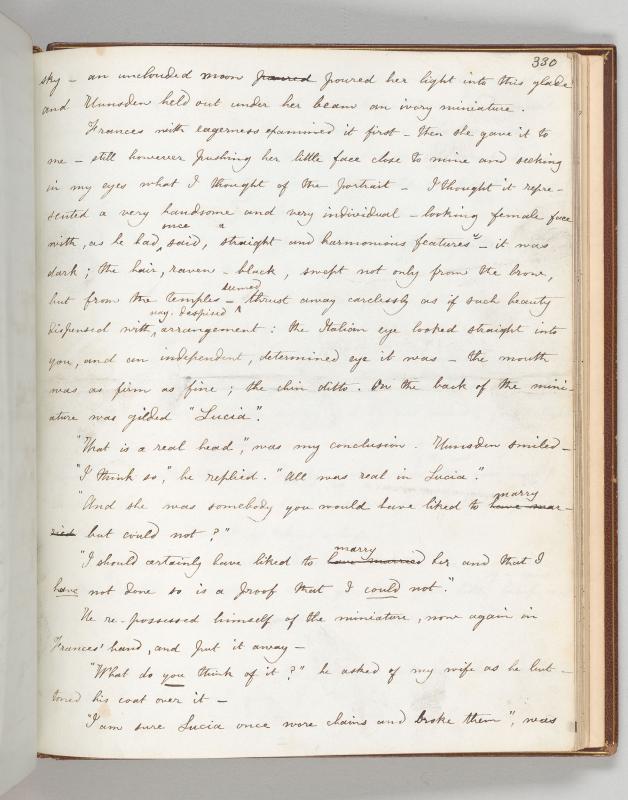 330
sky – an unclouded moon poured poured her light into this glade
and Hunsden held out under her beam an ivory miniature.
Frances with eagerness examined it first – then she gave it to
me – still however pushing her little face close to mine and seeking
in my eyes what I thought of the portrait – I thought it repre-
sented a very handsome and very individual-looking female face
with, as he had once said, "straight and harmonious features" – it was
dark; the hair, raven-black, swept not only from the brow,
but from the temples – seemed thrust away carelessly as if such beauty
dispensed with, nay, despised arrangement: the Italian eye looked straight into
you, and an independent, determined eye it was – the mouth
was as firm as fine; the chin ditto. On the back of the mini-
ature was gilded "Lucia".
"That is a real head", was my conclusion. Hunsden smiled –
"I think so," he replied. "All was real in Lucia".
"And she was somebody you would have liked to marry have mar-
ried but could not?"
"I should certainly have liked to marry have married her and that I
have not done so is a proof that I could not".
He re-possessed himself of the miniature, now again in
Frances' hand, and put it away –
"What do you think of it?" he asked of my wife as he but-
toned his coat over it –
"I am sure Lucia once wore chains and broke them", was